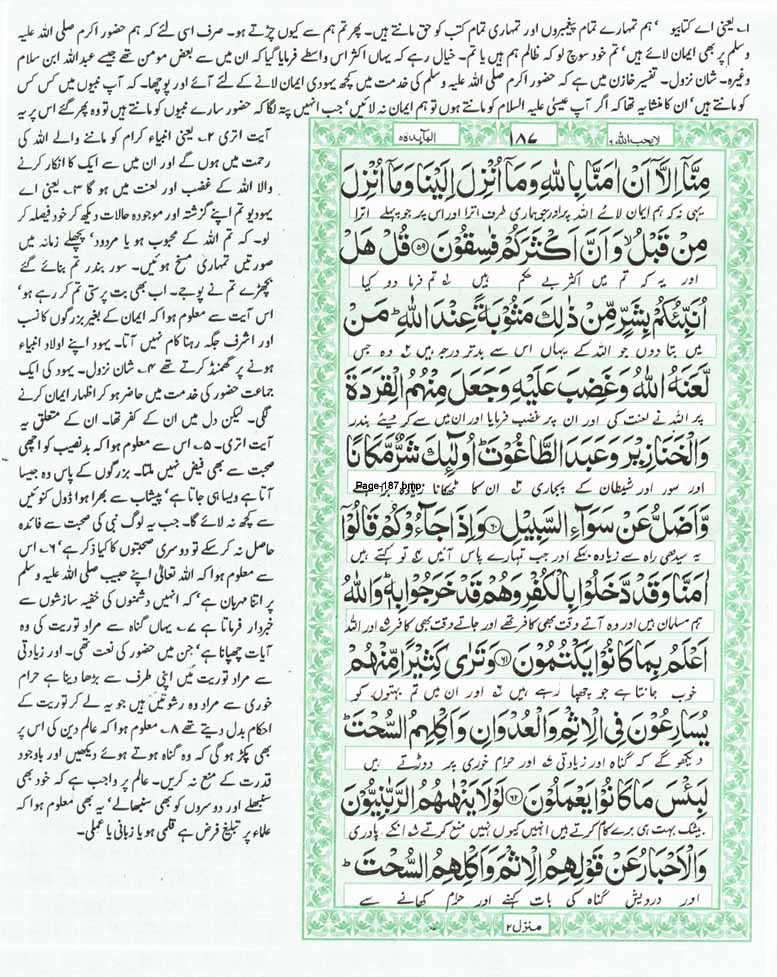 ۱۔ یعنی اے کتابیو ' ہم تمہارے تمام پیغمبروں اور تمہاری تمام کتب کو حق مانتے ہیں۔ پھر تم ہم سے کیوں چڑتے ہو۔ صرف اسی لئے کہ ہم حضور اکرم صلی اللہ علیہ
وسلم پر بھی ایمان لائے ہیں' تم خود سوچ لو کہ ظالم ہم ہیں یا تم۔ خیال رہے کہ یہاں اکثر اس واسطے فرمایا گیا کہ ان میں سے بعض مومن تھے جیسے عبداللہ ابن سلام
وغیرہ۔ شان نزول۔ تفسیر خازن میں ہے کہ حضور اکرم صلی اللہ علیہ وسلم کی خدمت میں کچھ یہودی ایمان لانے کے لئے آئے اور پوچھا۔ کہ آپ نبیوں میں کس کس
کو مانتے ہیں' ان کا منشا یہ تھا کہ اگر آپ عیسیٰ علیہ السلام کو مانتے ہوں تو ہم ایمان نہ لائیں' جب انہیں پتہ لگا کہ حضور سارے نبیوں کو مانتے ہیں تو وہ پھر گئے اس پر یہ
آیت اتری ۲۔ یعنی انبیاء کرام کو ماننے والے اللہ کی
رحمت میں ہوں گے اور ان میں سے ایک کا انکار کرنے
والا اللہ کے غضب اور لعنت میں ہو گا ۳۔ یعنی اے
یہودیو تم اپنے گزشتہ اور موجودہ حالات دیکھ کر خود فیصلہ کر
لو۔ کہ تم اللہ کے محبوب ہو یا مردود' پچھلے زمانہ میں
صورتیں تمہاری مسخ ہوئیں۔ سور بندر تم بنائے گئے
بچھڑے تم نے پوجے۔ اب بھی بت پرستی تم کر رہے ہو'
اس آیت سے معلوم ہوا کہ ایمان کے بغیر بزرگوں کا نسب
اور اشرف جگہ رہنا کام نہیں آتا۔ یہود اپنے اولاد انبیاء
ہونے پر گھمنڈ کرتے تھے ۴۔ شان نزول۔ یہود کی ایک
جماعت حضور کی خدمت میں حاضر ہو کر اظہار ایمان کرنے
لگی۔ لیکن دل میں ان کے کفر تھا۔ ان کے متعلق یہ
آیت اتری۔ ۵۔ اس سے معلوم ہوا کہ بدنصیب کو اچھی
صحبت سے بھی فیض نہیں ملتا۔ بزرگوں کے پاس وہ جیسا
آتا ہے ویسا ہی جاتا ہے' پیشاب سے بھرا ہوا ڈول کنوئیں
سے کچھ نہ لائے گا۔ جب یہ لوگ نبی کی صحبت سے فائدہ
حاصل نہ کر سکے تو دوسری صحبتوں کا کیا ذکر ہے' ۶۔ اس
سے معلوم ہوا کہ اللہ تعالیٰ اپنے حبیب صلی اللہ علیہ وسلم
پر اتنا مہربان ہے' کہ انہیں دشمنوں کی خفیہ سازشوں سے
خبردار فرماتا ہے ۷۔ یہاں گناہ سے مراد توریت کی وہ
آیات چھپانا ہے' جن میں حضور کی نعت تھی۔ اور زیادتی
سے مراد توریت میں اپنی طرف سے بڑھا دینا ہے حرام
خوری سے مراد وہ رشوتیں ہیں جو یہ لے کر توریت کے
احکام بدل دیتے تھے ۸۔ معلوم ہوا کہ عالم دین کی اس پر
بھی پکڑ ہو گی کہ وہ گناہ ہوتے ہوئے دیکھیں اور باوجود
قدرت کے منع نہ کریں۔ عالم پر واجب ہے کہ خود بھی
سنبھلے اور دوسروں کو بھی سنبھالے' یہ بھی معلوم ہوا کہ
علماء پر تبلیغ فرض ہے قلمی ہو یا زبانی یا عملی۔
لایحب اللہ ۶ ۱۸۷ المآىدة ۵
مِنَّاۤ اِلَّاۤ اَنْ اٰمَنَّا بِاللّٰهِ وَمَاۤ اُنْزِلَ اِلَیْنَا وَمَاۤ اُنْزِلَ
یہی نہ کہ ہم ایمان لائے اللہ پر اور جو ہماری طرف اترا اور اس پر جو پہلے اترا
مِنْ قَبْلُ ۙ وَ اَنَّ اَكْثَرَكُمْ فٰسِقُوْنَ ﴿۵۹﴾ قُلْ هَلْ
اور یہ کہ تم میں اکثر بے حکم ہیں تم فرما دو کیا
اُنَبِّئُكُمْ بِشَرٍّ مِّنْ ذٰلِكَ مَثُوْبَةً عِنْدَ اللّٰهِ ؕ مَنْ
میں بتا دوں جو اللہ کے یہاں اس سے بدتر درجہ میں ہیں وہ جس
لَّعَنَهُ اللّٰهُ وَغَضِبَ عَلَیْهِ وَجَعَلَ مِنْهُمُ الْقِرَدَةَ
پر اللہ نے لعنت کی اور ان پر غضب فرمایا اور ان میں سے کر دیئے بندر
وَالْخَنَازِیْرَ وَعَبَدَ الطَّاغُوْتَ ؕ اُولٰٓئِكَ شَرٌّ مَّكَانًا
اور سور اور شیطان کے پجاری ان کا ٹھکانا زیادہ برا ہے
Page-187.bmp
وَّاَضَلُّ عَنْ سَوَآءِ السَّبِیْلِ ﴿۶۰﴾ وَاِذَا جَآءُوْكُمْ قَالُوْۤا
یہ سیدھی راہ سے زیادہ بہکے اور جب تمہارے پاس آئیں تو کہتے ہیں
اٰمَنَّا وَقَدْ دَّخَلُوْا بِالْكُفْرِ وَهُمْ قَدْ خَرَجُوْا بِهٖ ؕ وَاللّٰهُ
ہم مسلمان ہیں اور وہ آتے وقت بھی کافر تھے اور جاتے وقت بھی کافر اور اللہ
اَعْلَمُ بِمَا كَانُوْا یَكْتُمُوْنَ ﴿۶۱﴾ وَتَرٰی كَثِیْرًا مِّنْهُمْ
خوب جانتا ہے جو چھپا رہے ہیں اور ان میں تم بہتوں کو
یُسَارِعُوْنَ فِی الْاِثْمِ وَالْعُدْوَانِ وَاَكْلِهِمُ السُّحْتَ ؕ
دیکھو گے کہ گناہ اور زیادتی اور حرام خوری پر دوڑتے ہیں
لَبِئْسَ مَا كَانُوْا یَعْمَلُوْنَ ﴿۶۲﴾ لَوْلَا یَنْهٰىهُمُ الرَّبّٰنِیُّوْنَ
بیشک بہت ہی برے کام کرتے ہیں انہیں کیوں نہیں منع کرتے انکے پادری
وَالْاَحْبَارُ عَنْ قَوْلِهِمُ الْاِثْمَ وَاَكْلِهِمُ السُّحْتَ ؕ
اور درویش گناہ کی بات کہنے اور حرام کھانے سے
منزل ۲